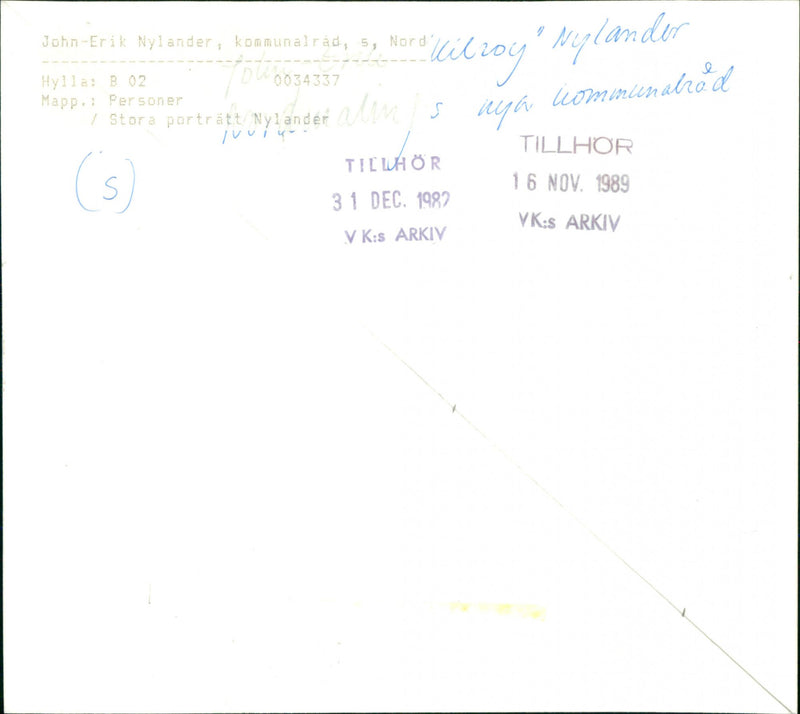 John-Erik Nylander, kommunalråd, s, Nord
Hylla: B 02 0034337
Mapp.: Personer
/ Stora porträtt Nylander
John Erik "Kilroy" Nylander
s nya kommunalråd
(s)
TILLHÖR
31 DEC. 1982
VK:s ARKIV
TILLHÖR
16 NOV. 1989
VK:s ARKIV